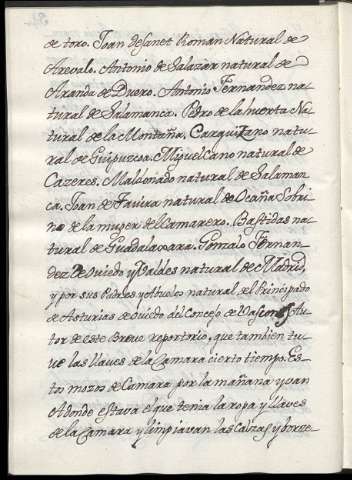 de toro. Joan de Sanct Roman Natural de
Arevalo. Antonio de Salazar natural de
Aranda de Duero. Antonio Fernandez na-
tural de Salamanca. Pedro de la huerta Na-
tural de la Montaña, Carquizano natu-
ral de Guipuzcoa. Miguel Cano natural de
Cazeres. Maldonado natural de Salaman-
ca. Joan de Tavira natural de Ocaña Sobri-
no de la muger del Camarero. Bastidas na-
tural de Guadalaxara. Gonzalo Fernan-
dez de Oviedo y Valdes natural de Madrid,
y por sus Padres y Abuelos natural del Principado
de Asturias de Oviedo del Concejo de Au-
tor de este Brevo reportrio, que tambien tu-
ve las llaves de la Camara cierto tiempo. Es-
tos mozos de Camara por la mañana y van
Adonde estava el que tenia la ropa y llaves
de la Camara y limpiavan las calzas y borce-